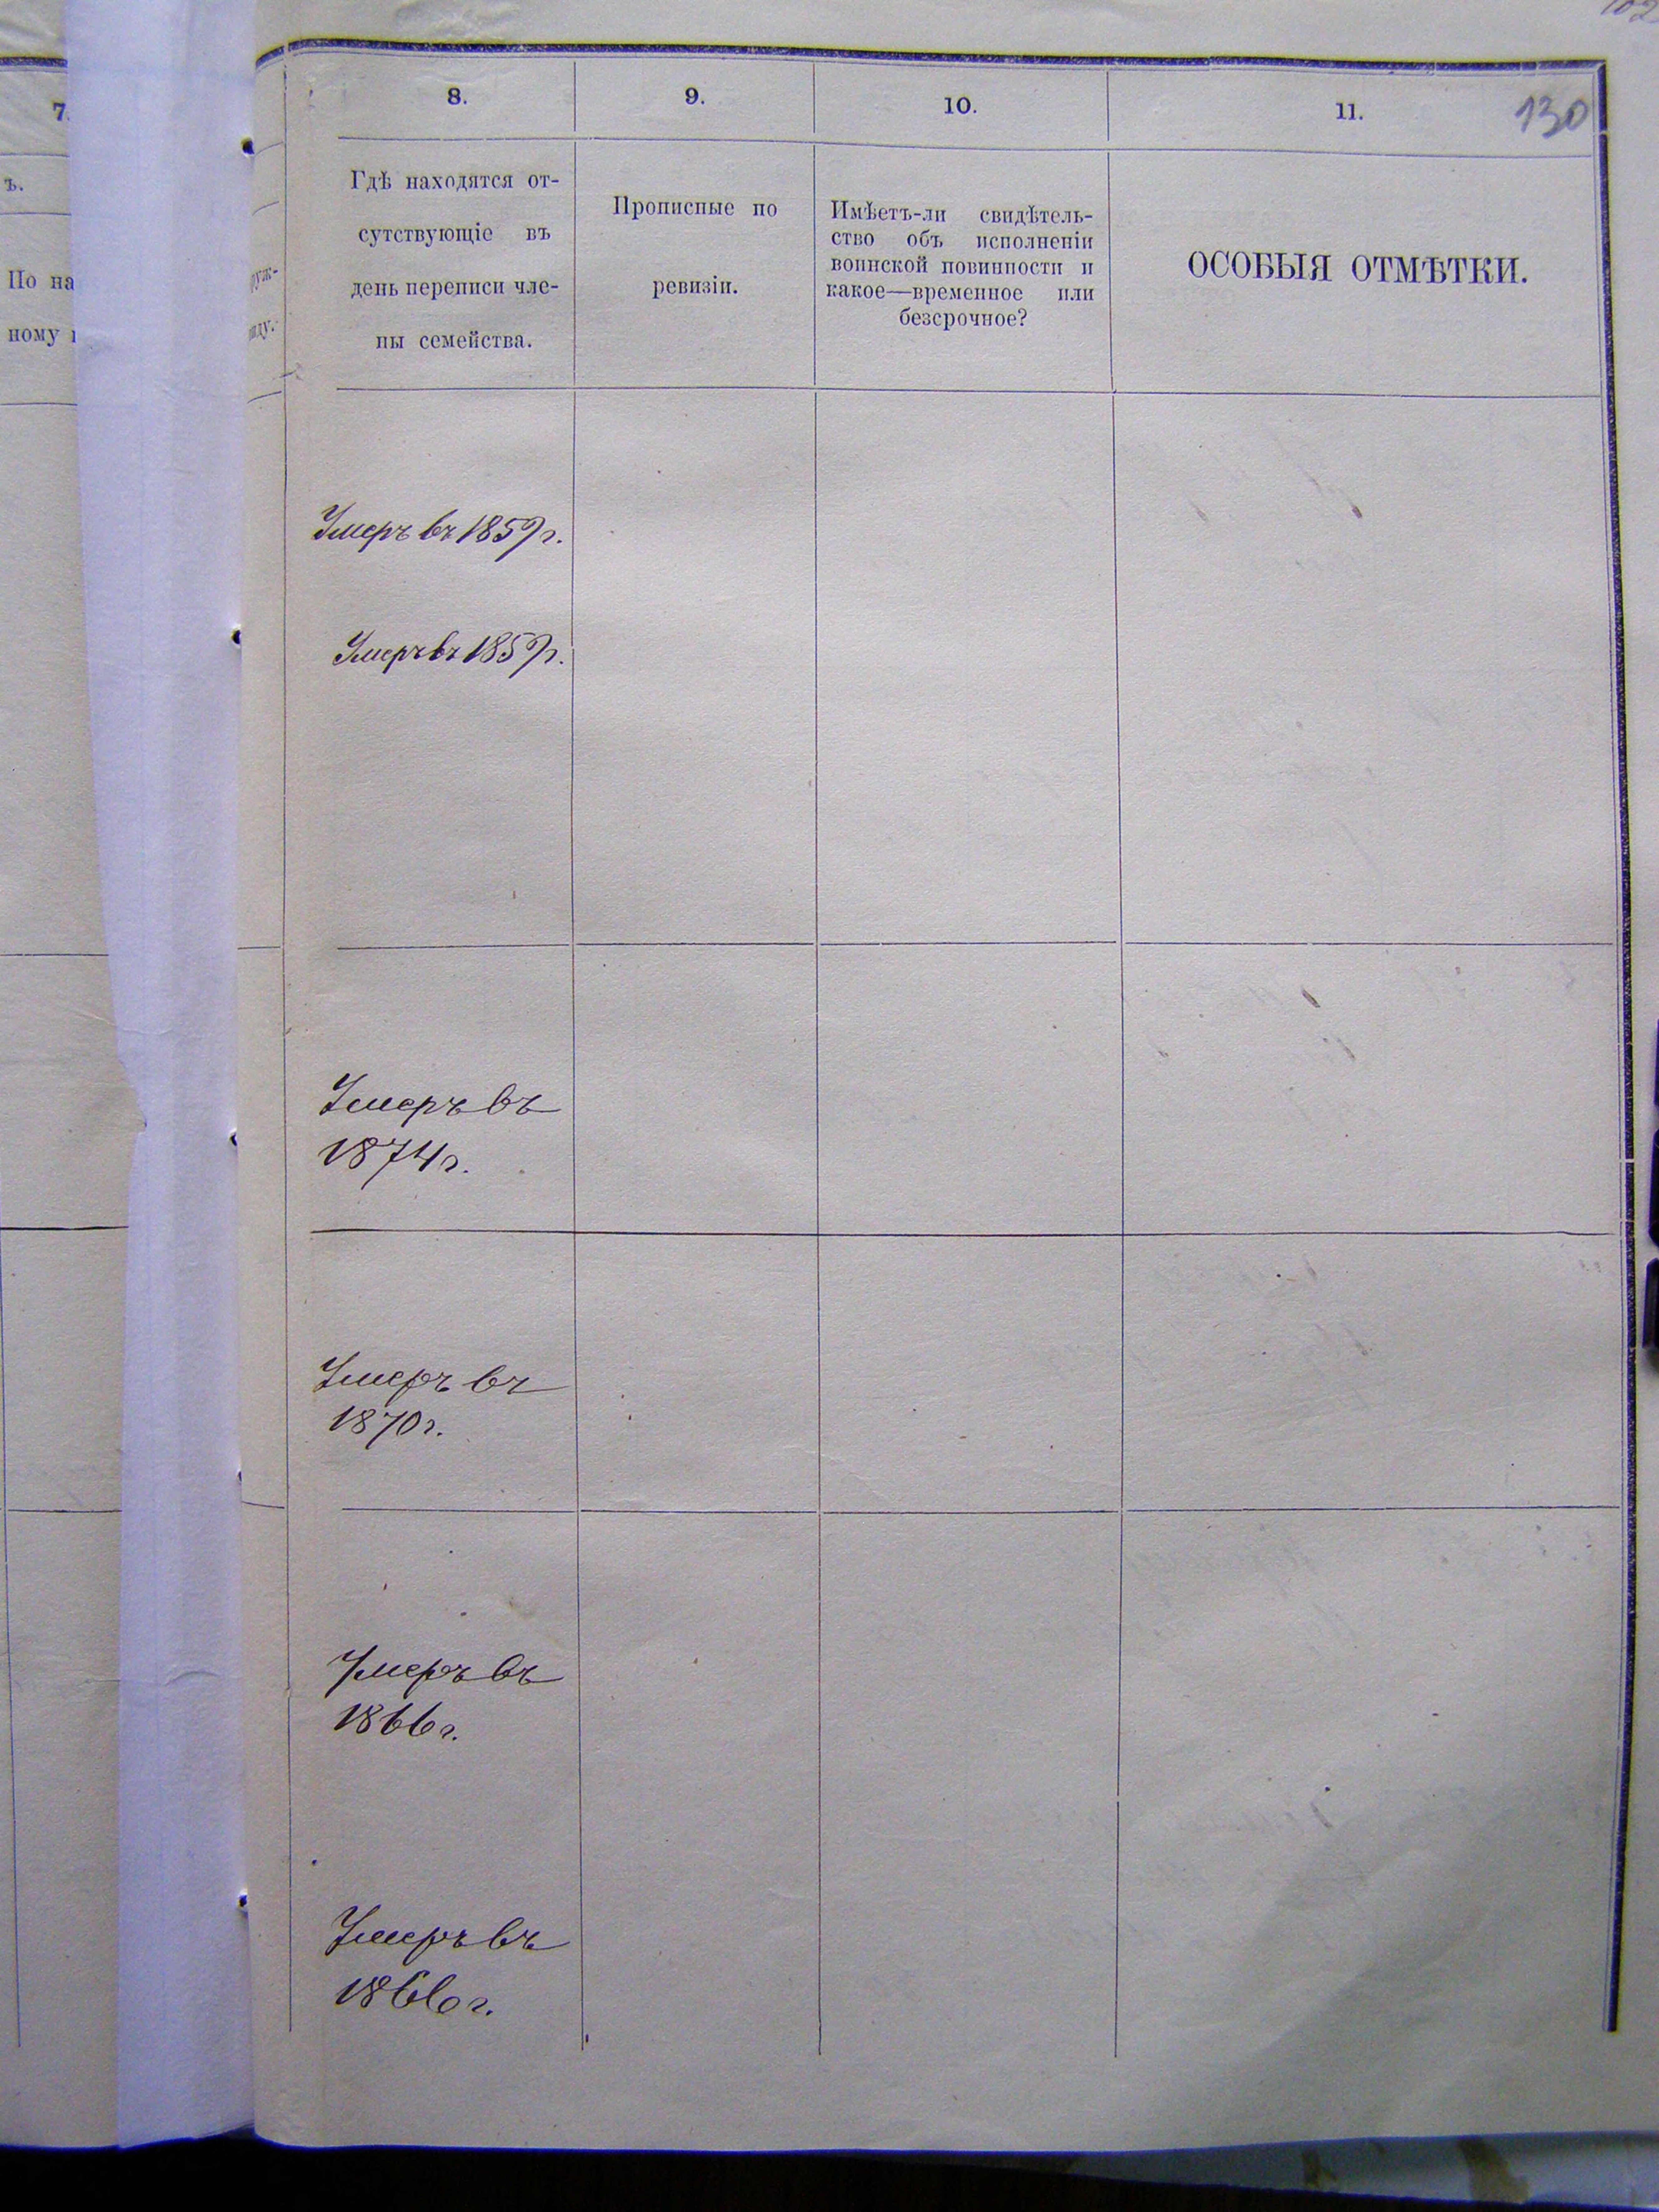 7.
ъ.
По на
ному
8.
9.
10.
11.
130
Гдѣ находятся от-
сутствующіе въ
день переписи чле-
ны семейства.
Прописные по
ревизіи.
Имѣетъ-ли свидѣтель-
ство объ исполненіи
воинской повинности и
какое—временное или
безсрочное?
ОСОБЫЯ ОТМѢТКИ.
Умеръ въ 1859 г.
Умеръ въ 1859 г.
Умеръ въ
1874 г.
Умеръ въ
1870 г.
Умеръ въ
1866 г.
Умеръ въ
1866 г.